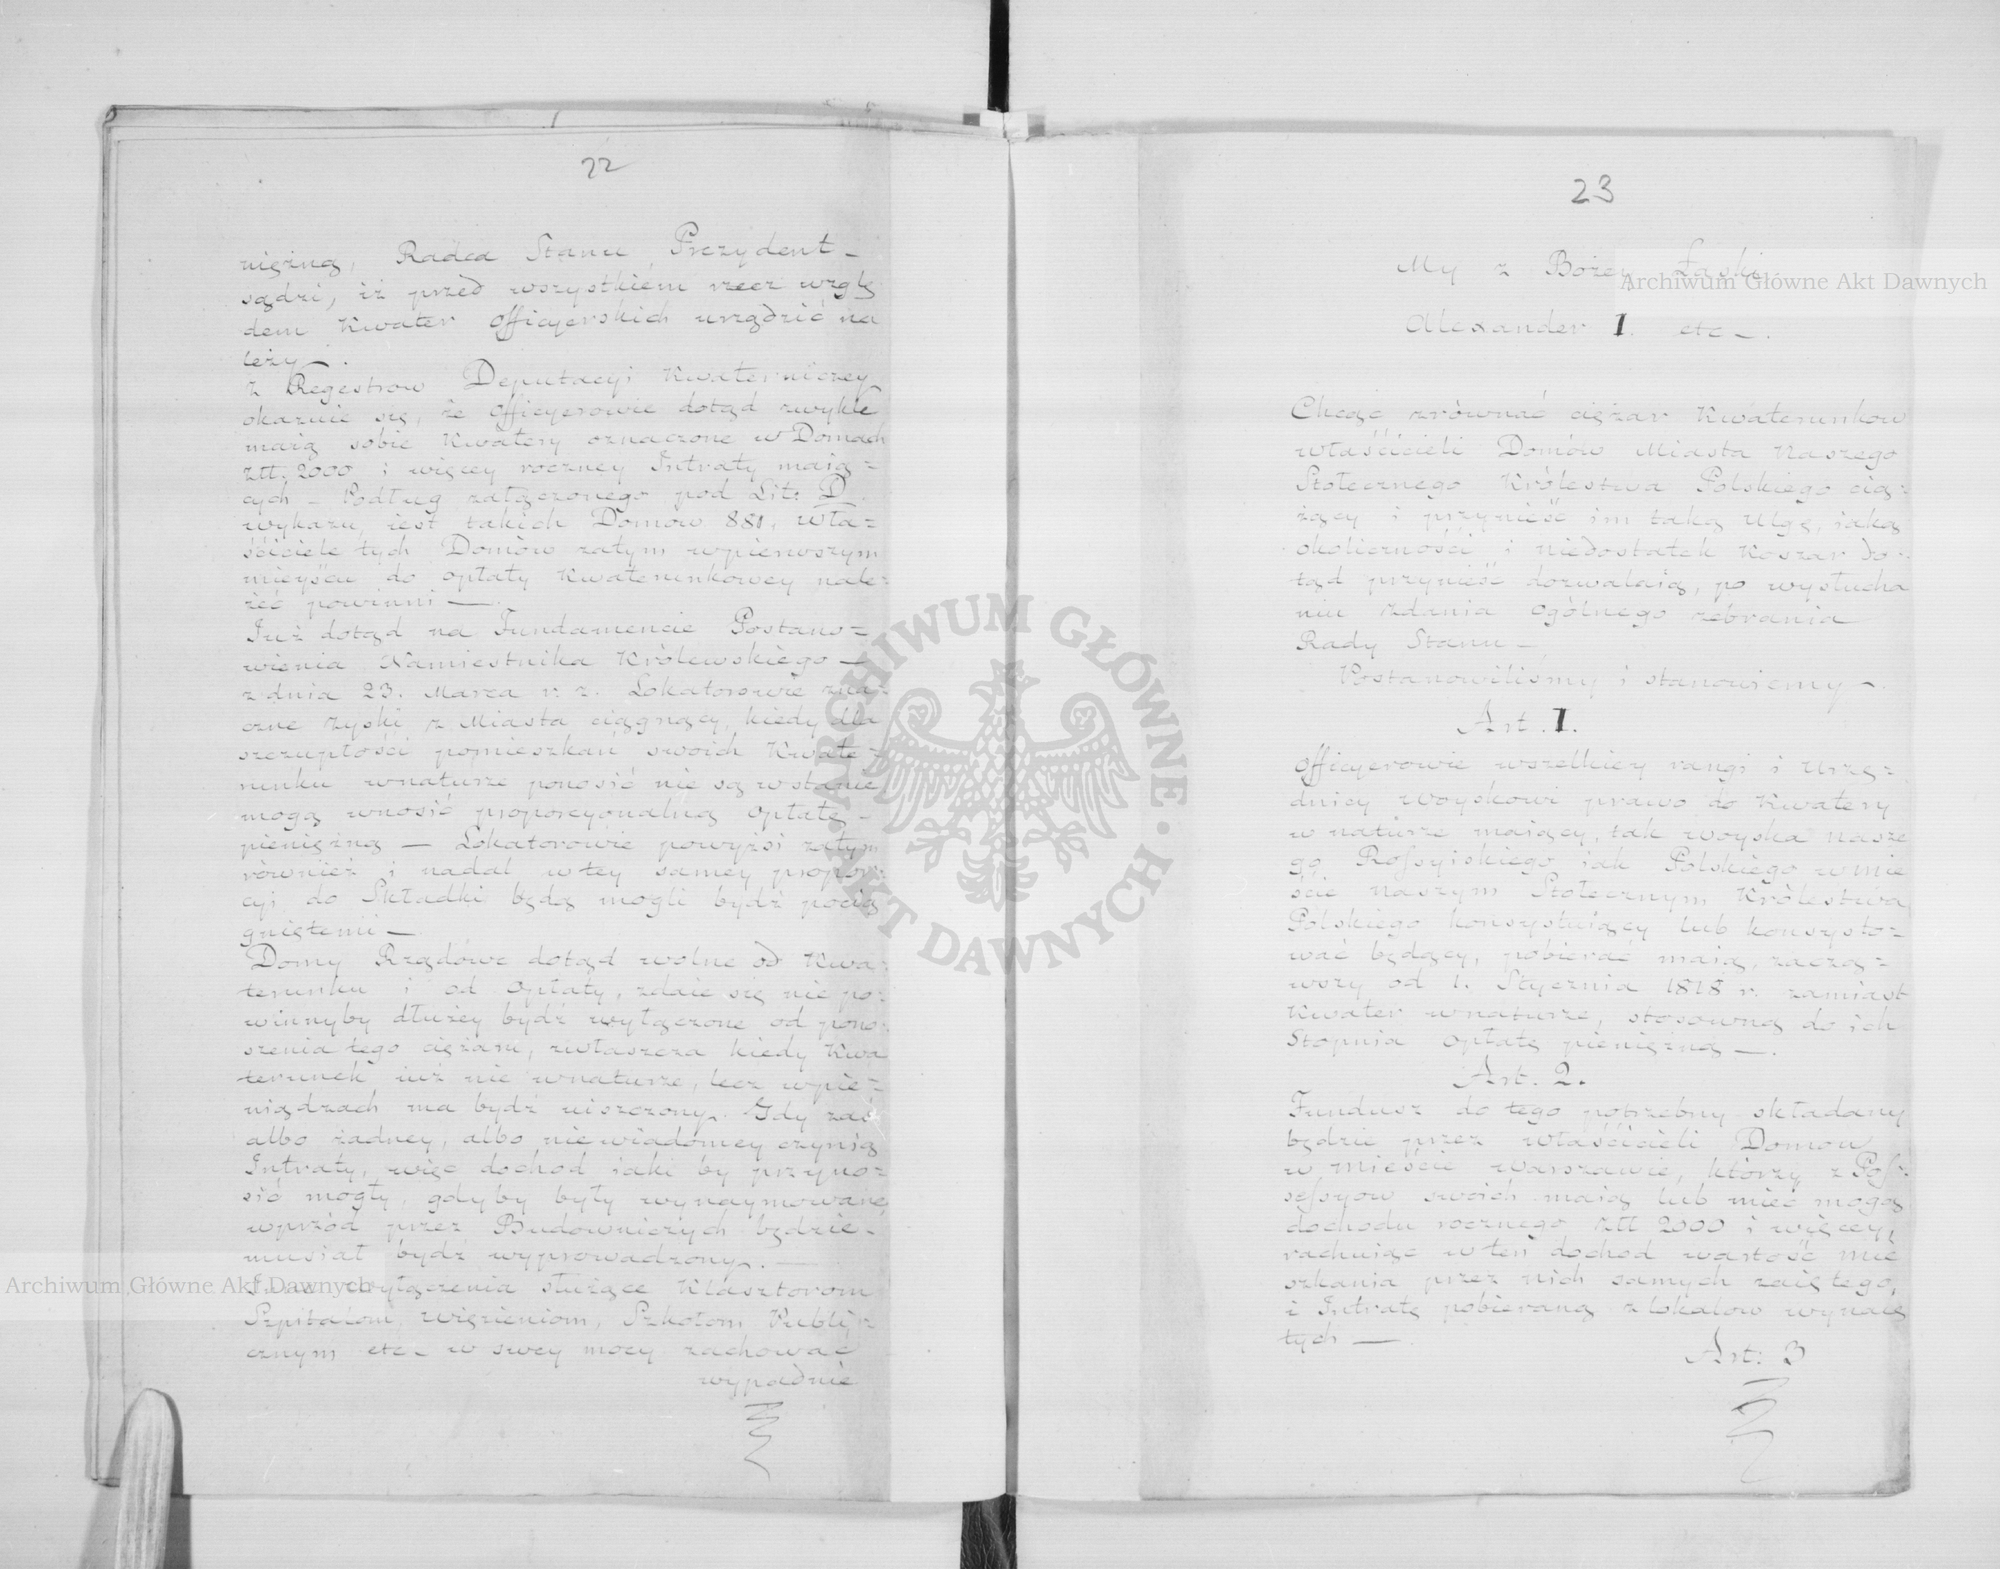 22
nięźną, Radca Stanu, Prezydent –
sądzi, iż przed wszystkiem rzecz wzglę
dem Kwater officyerskich urządzić na
leży –.
Z Regestrow Deputacyi Kwaterniczey
okazuie się, że officyerowie dotąd zwykle
maią sobie Kwatery oznaczone w Domach
Ztt. 2000 i więcey roczney Intraty maią=
cych – Podług załączonego pod Lit: D.
wykazu, iest takich Domow 881, Wła=
ściciele tych Domów zatym wpierwszym
mieyscu do opłaty Kwaterunkowey nale=
żeć powinni —.
Już dotąd na Fundamencie Postano=
wienia Namiestnika Królewskiego —
z dnia 23. Marca r. z. Lokatorowie zna=
czne zyski z Miasta ciągnący, kiedy dla
szczupłości pomieszkań swoich Kwate=
runku wnaturze ponosić nie są wstanie
mogą wnosić proporcyonalną opłatę –
pieniężną — Lokatorowie powyżsi zatym
również i nadal wtey samey propor=
cyi do Składki będą mogli bydź pocią
gniętemi —.
Domy Rządowe dotąd wolne od Kwa=
terunku i od opłaty, zdaie się nie po=
winnyby dłużey bydź wyłączone od pono=
szenia tego ciężaru, zwłaszcza kiedy Kwa
terunek iuż nie wnaturze, lecz wpie=
niądzach ma bydź uiszczony. Gdy zaś
albo żadney, albo niewiadomey czynią
Intraty, więc dochod iaki by przyno=
sić mogły, gdyby były wynaymowane
wprzód przez Budowniczych będzie –
musiał bydź wyprowadzony. —
Inne wyłączenia służące Klasztorom
Szpitalom, więzieniom, Szkołom Publi=
cznym etc – w swey mocy zachować
wypadnie
23
My z Bożey Łaski
Alexander I. etc –.
Chcąc zrównać ciężar Kwaterunkow
właścicieli Domów Miasta Naszego
Stołecznego Królestwa Polskiego cią=
żący i przynieść im taką Ulgę, iaką
okoliczności i niedostatek Koszar do=
tąd przynieść dozwalaią, po wysłucha
niu zdania ogólnego zebrania
Rady Stanu –
Postanowilismy i stanowiemy –.
Art. I.
Officyerowie wszelkiey rangi i Urzę=
dnicy woyskowi prawo do Kwatery
w naturze maiący, tak woyska nasze
go Rossyiskiego iak Polskiego wmie
ście naszym Stołecznym Królestwa
Polskiego konsystuiący lub konsysto=
wać będący, pobierać maią, zaczą=
wszy od 1. Stycznia 1818 r. zamiast
Kwater wnaturze, stosowną do ich
Stopnia opłatę pieniężną —.
Art. 2.
Fundusz do tego potrzebny składany
będzie przez właścicieli Domow
w mieście Warszawie, którzy z Pos=
sessyow swoich maią lub mieć mogą
dochodu rocznego Ztt 2000 i więcey,
rachuiąc w ten dochod wartość mie
szkania przez nich samych zaiętego,
i Intratę pobieraną z lokalow wynaię
tych —.
Art: 3
Archiwum Główne Akt Dawnych
Archiwum Główne Akt Dawnych
ARCHIWUM GŁÓWNE · AKT DAWNYCH ·